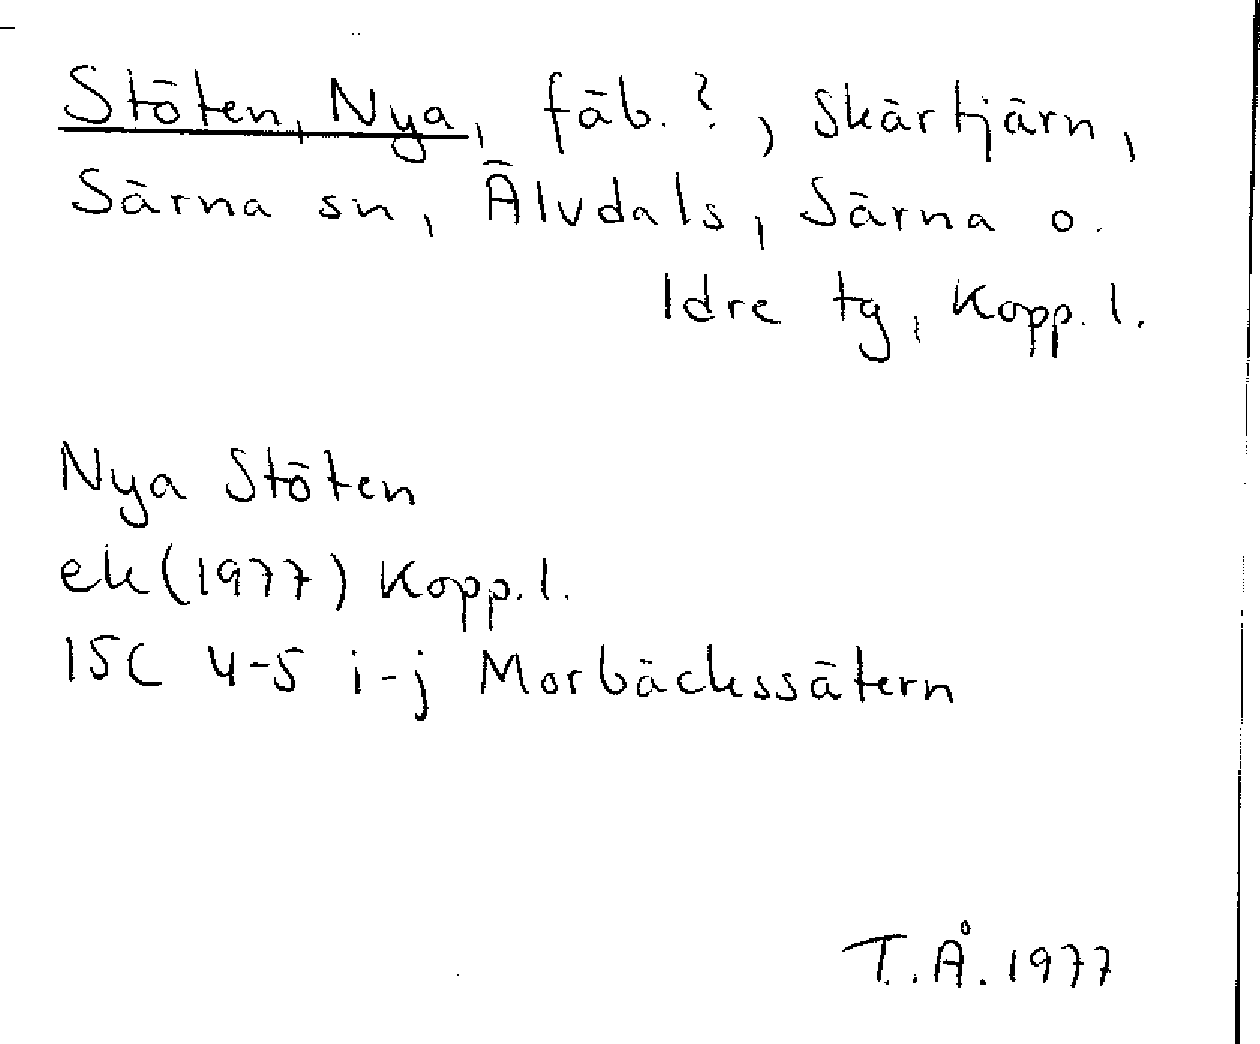 Stöten, Nya, fäb.?, Skärtjärn,
Särna sn, Älvdals, Särna o.
Idre tg, Kopp. l.
Nya Stöten
ek (1977) Kopp. l.
15C 4-5 i-j Morbäckssätern
T.Å. 1977